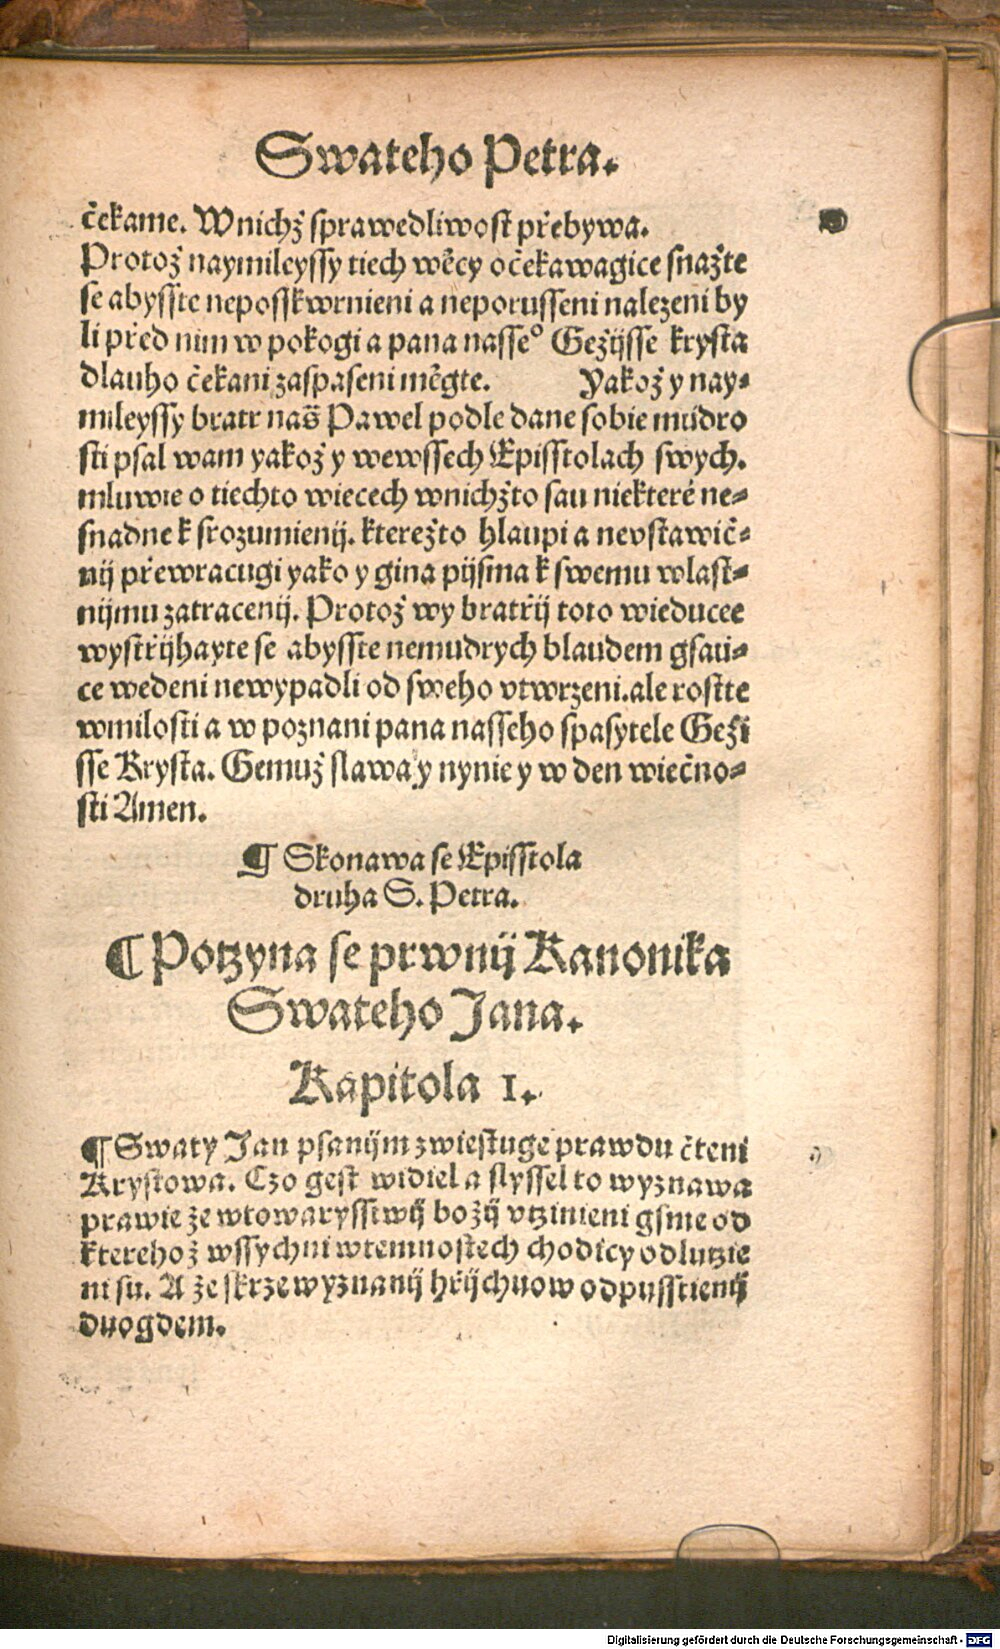 Swateho Petra.
čekame. Wnichž sprawedliwost přebywa.
Protož naymileyssy tiech wěcy očekawagice snažte
se abysste neposskwrnieni a neporusseni nalezeni by
li před nim w pokogi a pana nasseº Gežijsse krysta
dlauho čekani zaspaseni měgte. Yakož y nay⸗
mileyssy bratr naš Pawel podle dane sobie mudro
sti psal wam yakož y wewssech Episstolach swych.
mluwie o tiechto wiecech wnichžto sau niekteré ne⸗
snadne k srozumienij. kterežto hlaupi a nevstawič⸗
nij přewracugi yako y gina pijsma k swemu wlast⸗
nijmu zatracenij. Protož wy bratřij toto wieducee
wystřijhayte se abysste nemudrych blaudem gsau⸗
ce wedeni newypadli od sweho vtwrzeni. ale rostte
wmilosti a w poznani pana nasseho spasytele Geži
sse Krysta. Gemuž slawa y nynie y w den wiečno⸗
sti Amen.
¶ Skonawa se Episstola
druha S. Petra.
¶ Potzyna se prwnij Kanonika
Swateho Jana.
Kapitola 1.
¶ Swaty Jan psanijm zwiestuge prawdu čteni
Krystowa. Czo gest widiel a slyssel to wyznawa
prawie že wtowarysstwij božij vtzinieni gsme od
kterehož wssychni wtemnostech chodicy odlutzie
ni su. A že skrze wyznanij hřijchuow odpusstienij
duogdem.
Digitalisierung gefördert durch die Deutsche Forschungsgemeinschaft - DFG